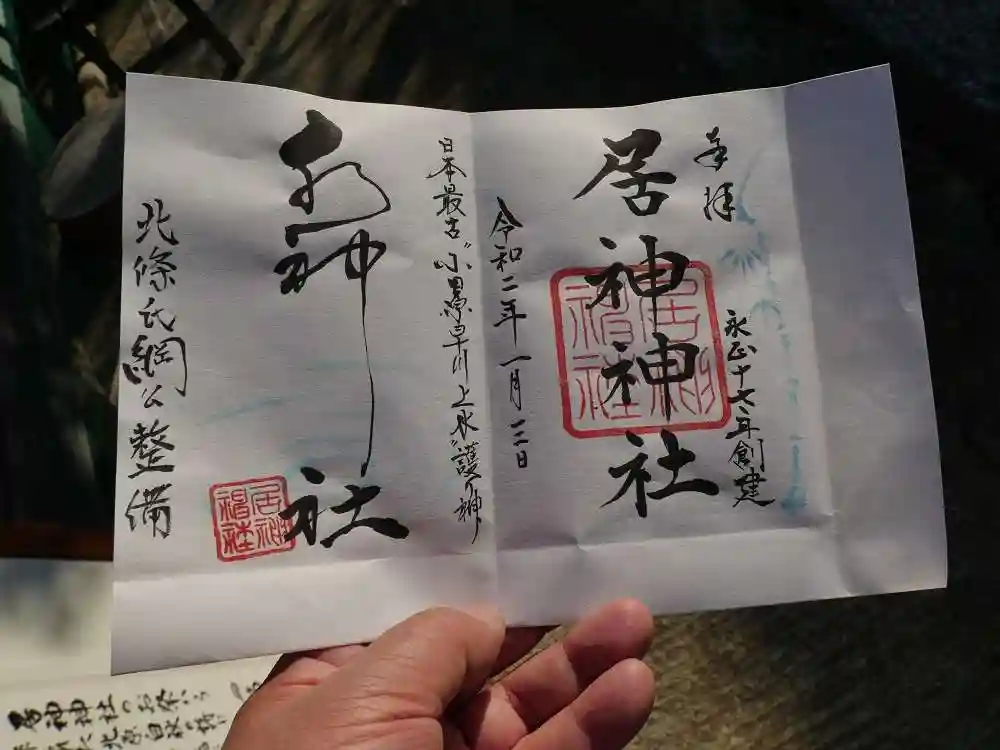 奉拝
永正十七年創建
居神神社
居神神社
令和二年一月三日
日本最古“小田原早川上水”護り神
水神社
居神神社
北條氏綱公整備
居神神社のお祭り